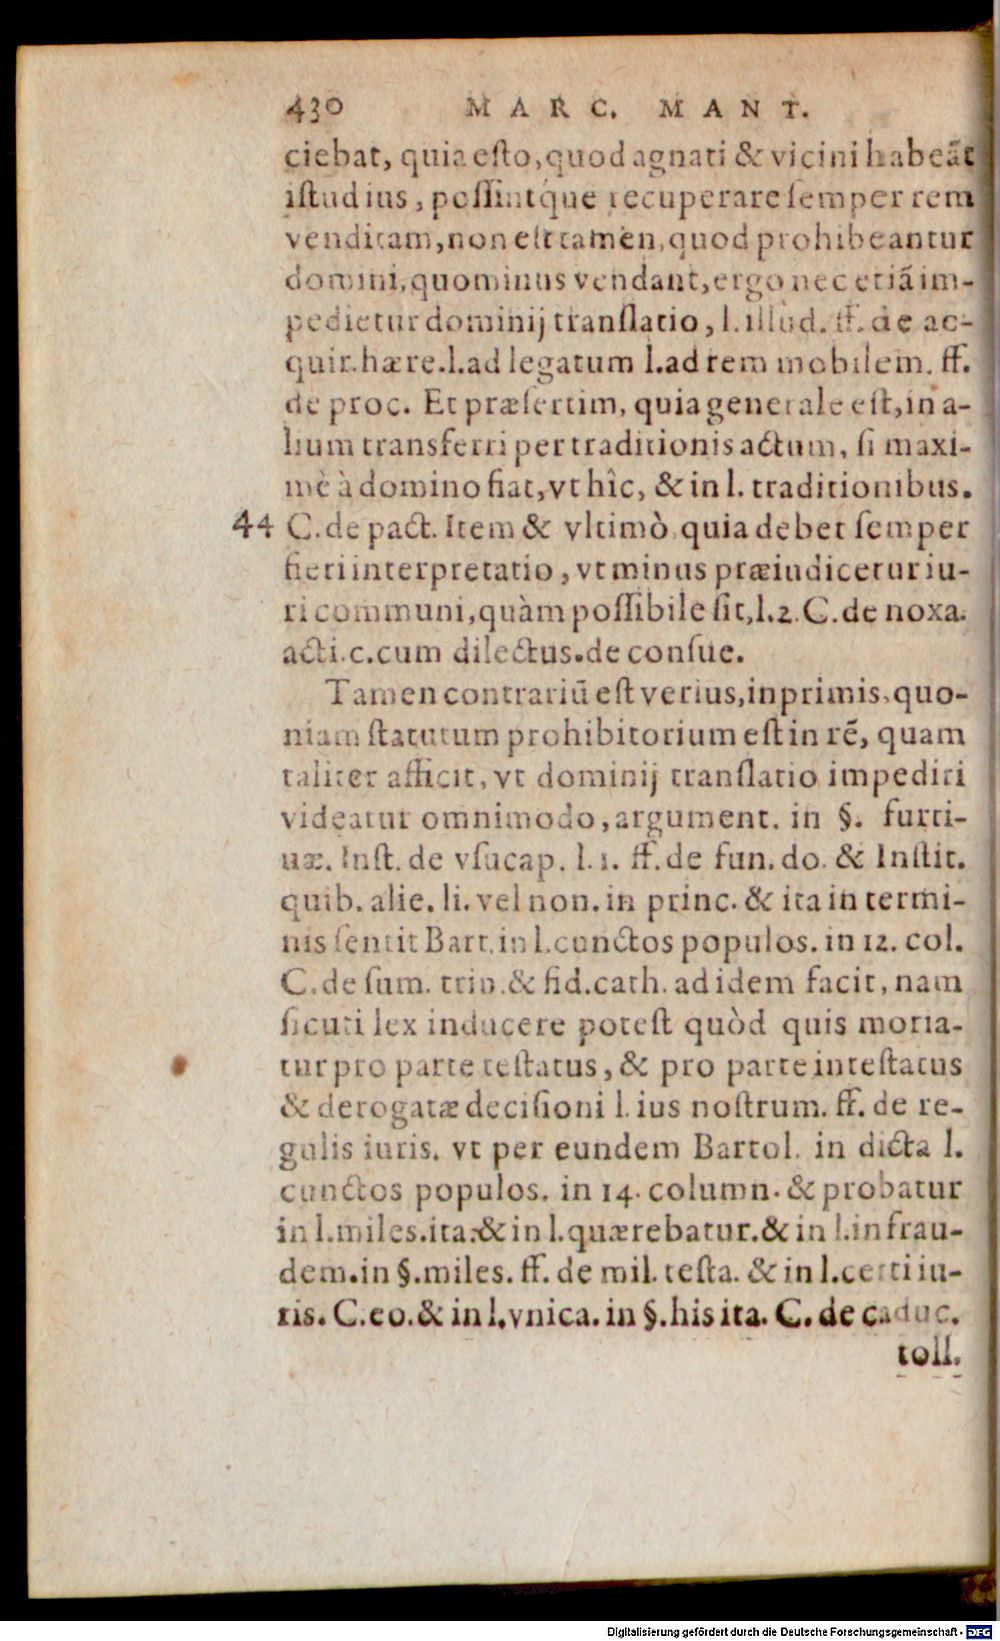 430 MARC. MANT.
ciebat, quia esto, quod agnati & vicini habeãt
istud ius, possintq́ue recuperare semper rem
venditam, non est tamen, quod prohibeantur
domini, quominus vendant, ergo nec etiã im-
pedietur dominij translatio, l. illud. ff. de ac-
quir. hære. l. ad legatum l. ad rem mobilem. ff.
de proc. Et præsertim, quia generale est, in a-
lium transferri per traditionis actum, si maxi-
mè à domino fiat, vt hîc, & in l. traditionibus.
44 C. de pact. Item & vltimò quia debet semper
fieri interpretatio, vt minus præiudicetur iu-
ri communi, quàm possibile sit, l. 2. C. de noxa.
acti. c. cum dilectus. de consue.
Tamen contrariũ est verius, inprimis, quo-
niam statutum prohibitorium est in rẽ, quam
taliter afficit, vt dominij translatio impediri
videatur omnimodo, argument. in §. furti-
uæ. Inst. de vsucap. l. 1. ff. de fun. do. & Instit.
quib. alie. li. vel non. in princ. & ita in termi-
nis sentit Bart. in l. cunctos populos. in 12. col.
C. de sum. trin. & fid. cath. ad idem facit, nam
sicuti lex inducere potest quòd quis moria-
tur pro parte testatus, & pro parte intestatus
& derogatæ decisioni l. ius nostrum. ff. de re-
gulis iuris. vt per eundem Bartol. in dicta l.
cunctos populos. in 14. column. & probatur
in l. miles. ita. & in l. quærebatur. & in l. in frau-
dem. in §. miles. ff. de mil. testa. & in l. certi iu-
ris. C. eo. & in l. vnica. in §. his ita. C. de caduc.
toll.
Digitalisierung gefördert durch die Deutsche Forschungsgemeinschaft - DFG